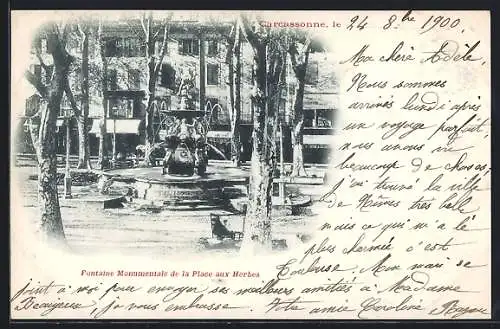 Carcassonne, le 24 8bre 1900.
Ma chère Adèle,
Nous sommes
arrivés lundi après
un voyage parfait,
nous avons vu
beaucoup de choses,
j'ai trouvé la ville
de Nîmes très belle
mais ce qui m'a le
plus charmée c'est
Toulouse. Mon mari se
Fontaine Monumentale de la Place aux Herbes
joint à moi pour envoyer ses meilleures amitiés à Madame
je vous embrasse. Votre amie Caroline